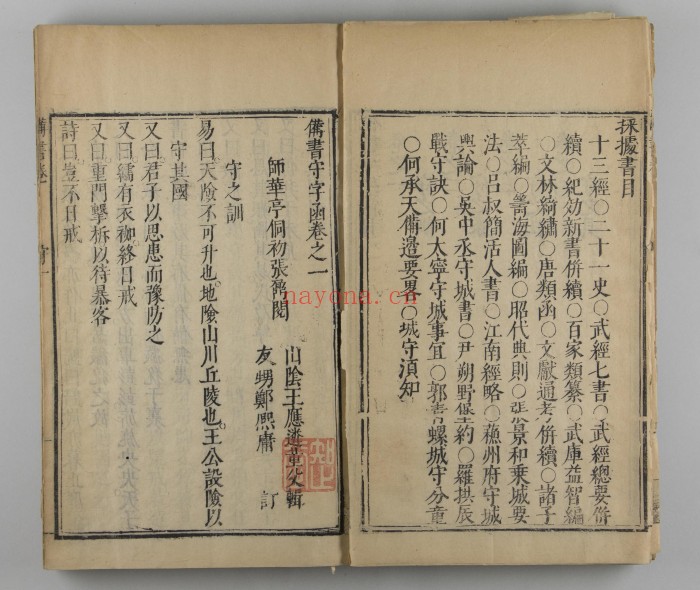 採據書目
十三經○二十一史○武經七書○武經總要併
續○紀効新書併續○百家類纂○武庫益智編
○文林綺繡○唐類函○文獻通考併續○諸子
萃編○籌海圖編○昭代典則○張景和乗城要
法○吕叔簡活人書○江南經略○蘓州府守城
輿論○吳中丞守城書○尹朔野堡約○羅拱辰
戰守訣○何太寧守城事宜○郭青螺城守分童
○何承天備邊要畧○城守湏知
備書守字函卷之一
師華亭侗初張鼐閲
山陰王應遴堇父輯
友甥鄭熙庸 訂
守之訓
易曰天險不可升也地險山川丘陵也王公設險以
守其國
又曰君子以思患而豫防之
又曰繻有衣袽終日戒
又曰重門擊柝以待暴客
詩曰豈不日戒
備書卷一
nayona.cn